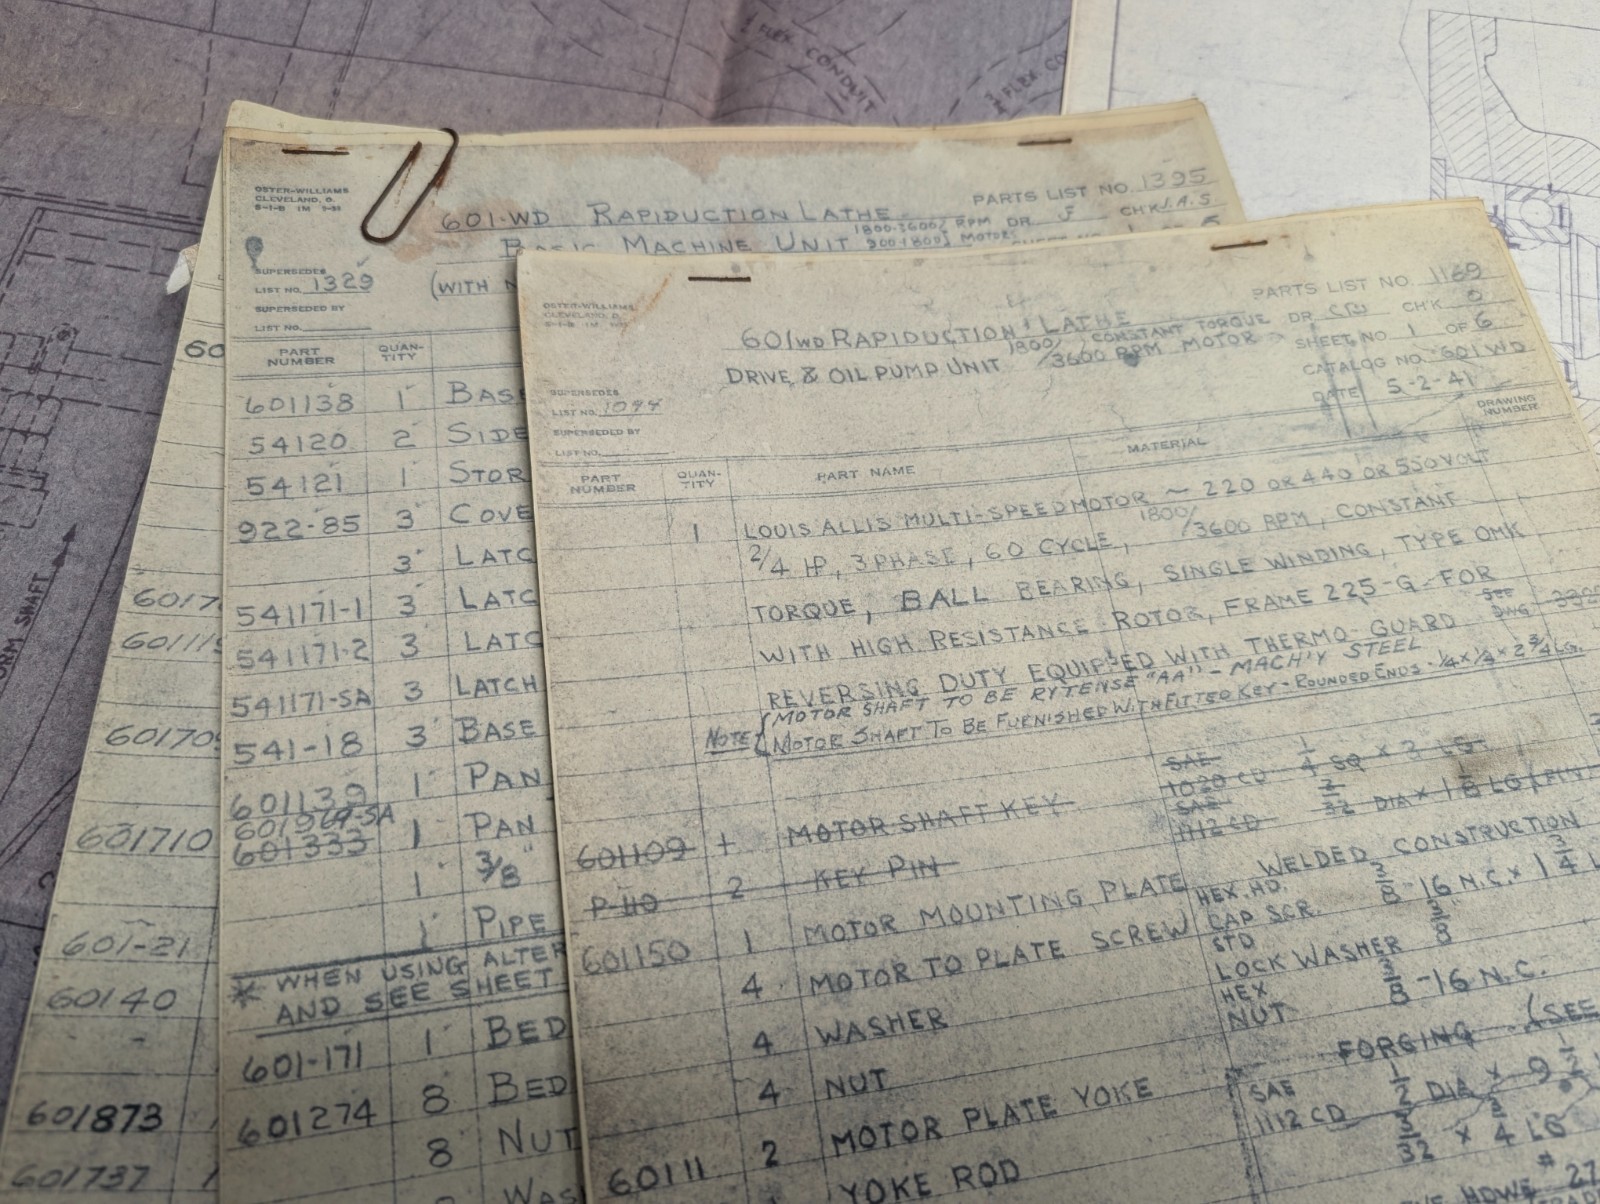 FLEX CONDUIT
FLEX CO
ORM SHAFT
60
6017
601119
601709
601710
601-21
60140
601873
601737
OSTER-WILLIAMS
CLEVELAND, O.
PARTS LIST NO. 1395
601-WD RAPIDUCTION LATHE
1800-3600 RPM DR J CHK J.A.S
BASIC MACHINE UNIT 900-1800 MOTORS
SUPERSEDES
LIST NO. 1329
(WITH
SUPERSEDED BY
LIST NO.
PART NUMBER QUAN-TITY
601138 1 BASE
54120 2 SIDE
54121 1 STOR
922-85 3 COVE
3 LATC
541171-1 3 LATC
541171-2 3 LATC
541171-SA 3 LATCH
541-18 3 BASE
601139 1 PAN
601969-SA
601333 1 PAN
1 3/8"
1 PIPE
* WHEN USING ALTER
AND SEE SHEET
601-171 1 BED
601274 8 BED
8 NUT
WAS
OSTER-WILLIAMS
CLEVELAND, O.
PARTS LIST NO. 1169
601WD RAPIDUCTION LATHE
DR CHK
1800/3600 RPM CONSTANT TORQUE MOTOR
DRIVE & OIL PUMP UNIT
SHEET NO 1 OF 6
CATALOG NO. 601 WD
DATE 5-2-41
SUPERSEDES
LIST NO. 1094
SUPERSEDED BY
LIST NO.
PART NUMBER QUAN-TITY PART NAME MATERIAL DRAWING NUMBER
1 LOUIS ALLIS MULTI-SPEED MOTOR ~ 220 OR 440 OR 550 VOLT
2/4 HP, 3 PHASE, 60 CYCLE, 1800/3600 RPM, CONSTANT
TORQUE, BALL BEARING, SINGLE WINDING, TYPE OMK
WITH HIGH RESISTANCE ROTOR, FRAME 225-G-FOR
REVERSING DUTY EQUIPPED WITH THERMO-GUARD SEE DWG
NOTE (MOTOR SHAFT TO BE RYTENSE "AA" - MACH'Y STEEL
MOTOR SHAFT TO BE FURNISHED WITH FITTED KEY - ROUNDED ENDS - 1/4 x 1/4 x 2 3/4 LG.
601109 1 MOTOR SHAFT KEY SAE 1020 CD 1/4 SQ x 2 LG.
P-110 2 KEY PIN SAE 1112 CD 3/32 DIA x
601150 1 MOTOR MOUNTING PLATE WELDED CONSTRUCTION
4 MOTOR TO PLATE SCREW HEX. HD. CAP SCR. 3/8 - 16 N.C. x 1 3/4 L
4 WASHER STD LOCK WASHER 3/8
4 NUT HEX NUT 3/8 - 16 N.C.
60111 2 MOTOR PLATE YOKE FORGING (SEE
YOKE ROD SAE 1112 CD 1/2 DIA x 9 1/2
5/32 x 3/4 LG
HDWE #27